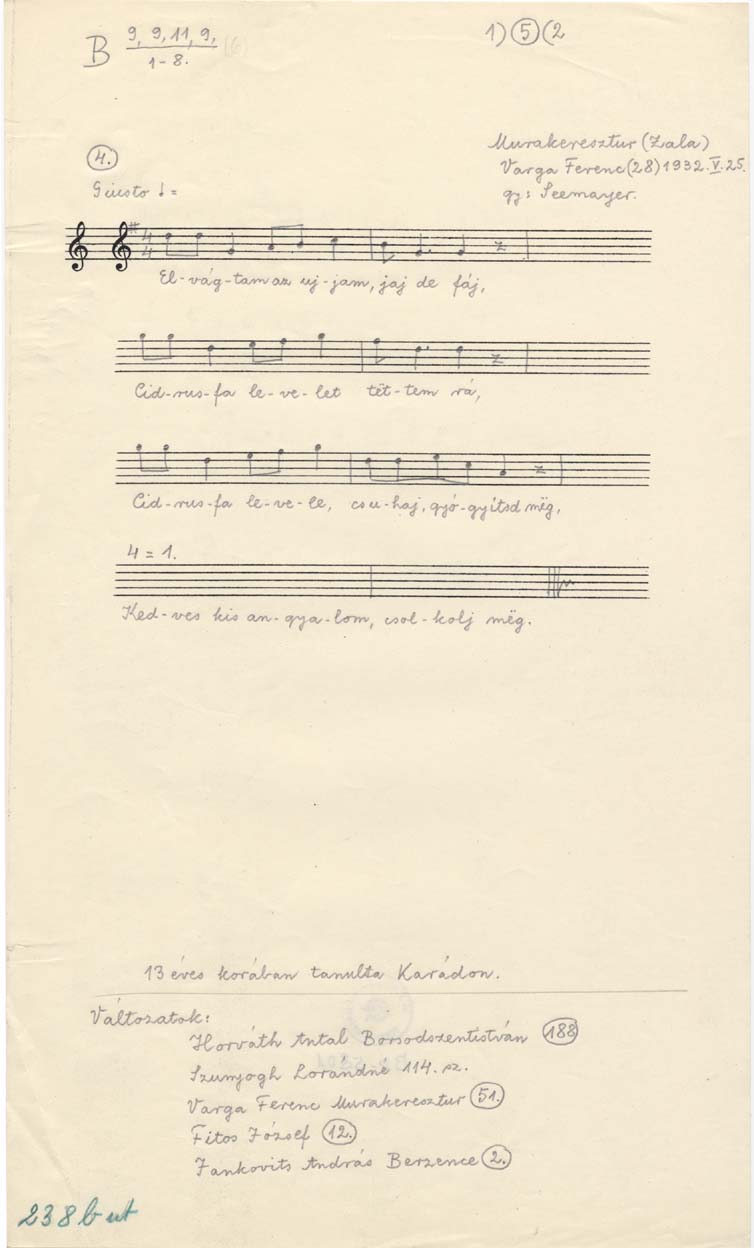 B 9, 9, 11, 9,
1-8.
1) 5 (2
Murakeresztur (Zala)
Varga Ferenc (28) 1932. V. 25.
gy: Seemayer.
4.
Giusto ♩=
El-vág-tam az uj-jam, jaj de fáj,
Cid-rus-fa le-ve-let tët-tem rá,
Cid-rus-fa le-ve-le, csu-haj, gyó-gyítsd mëg,
4 = 1.
Ked-ves kis an-gya-lom, csol-kolj mëg.
13 éves korában tanulta Karádon.
Változatok:
Horváth Antal Borsodszentistván 188
Szunyogh Lorandné 114. sz.
Varga Ferenc Murakeresztur 51.
Fitos József 12.
Jankovits András Berzence 2.
238 b ut